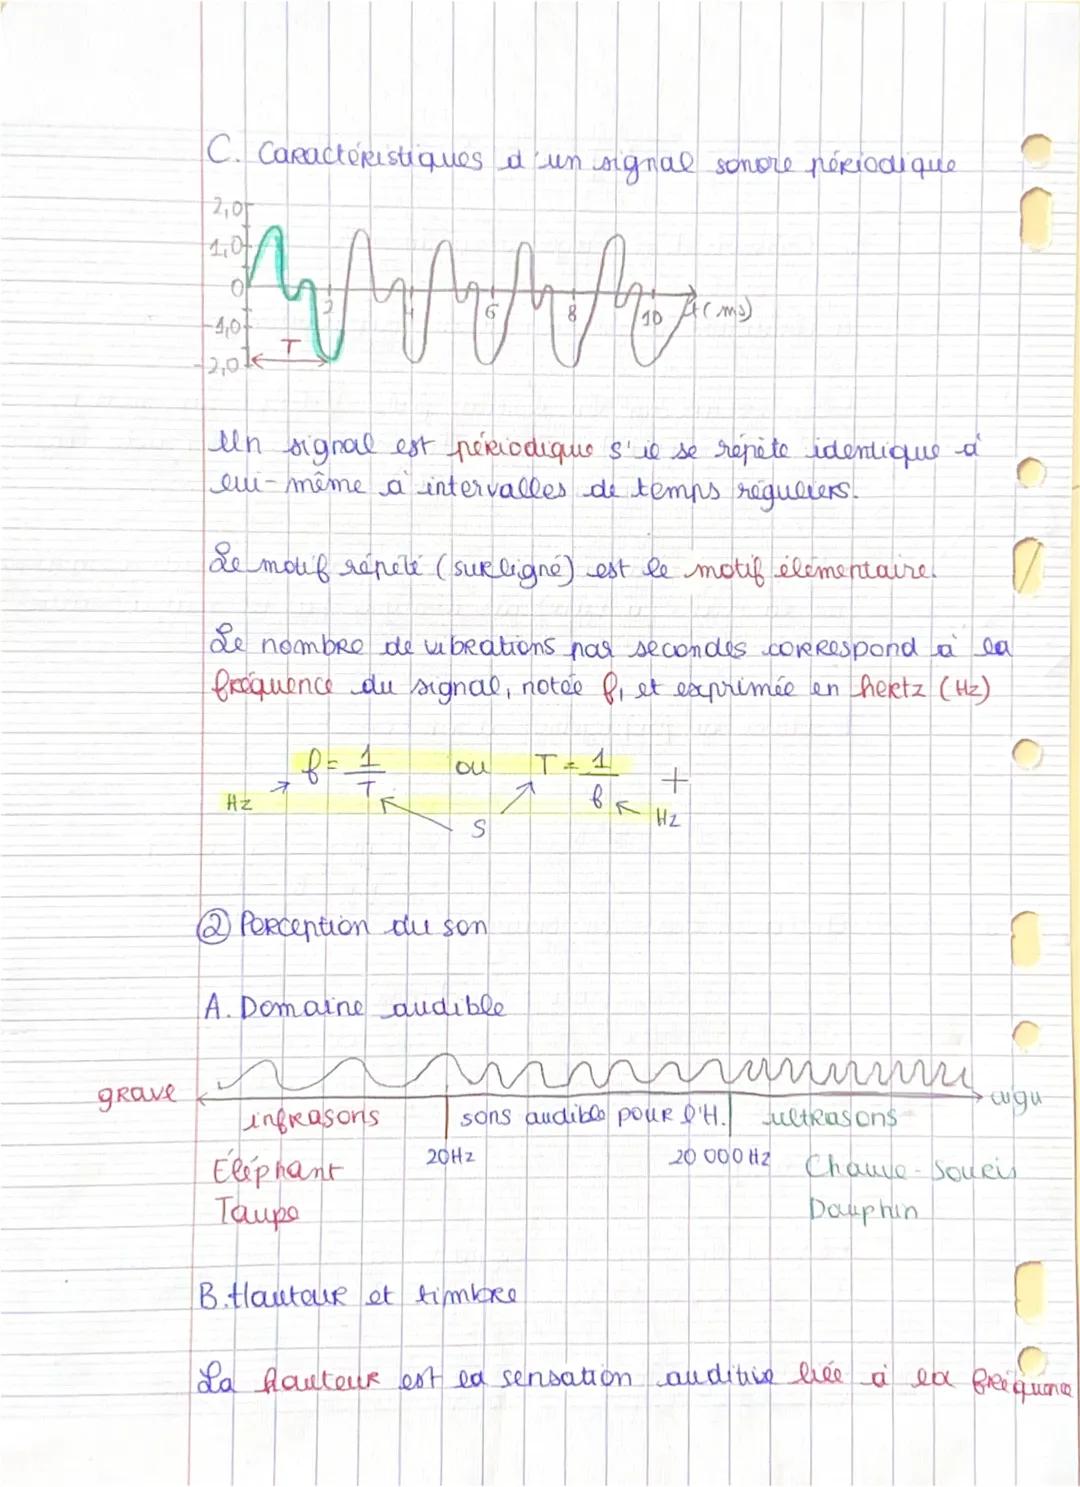 C. Caractéristiques d'un signal sonore périodique
2,0
1,0
0
-1,0
-2,0
T
2
4
6
8
10
t(ms)
Un signal est périodique s'il se répète identique à
lui-même à intervalles de temps réguliers.
Le motif répété (surligné) est le motif élémentaire.
Le nombre de vibrations par secondes correspond à la
fréquence du signal, notée f, et exprimée en hertz (Hz)
f = 1/T ou T = 1/f +
Hz
S
Hz
② Perception du son
A. Domaine audible
grave
aigu
infrasons sons audible pour l'H. ultrasons
20Hz 20 000 Hz
Éléphant Chauve-Souris
Taupe Dauphin
B. Hauteur et timbre
La hauteur est la sensation auditive liée à la fréquence